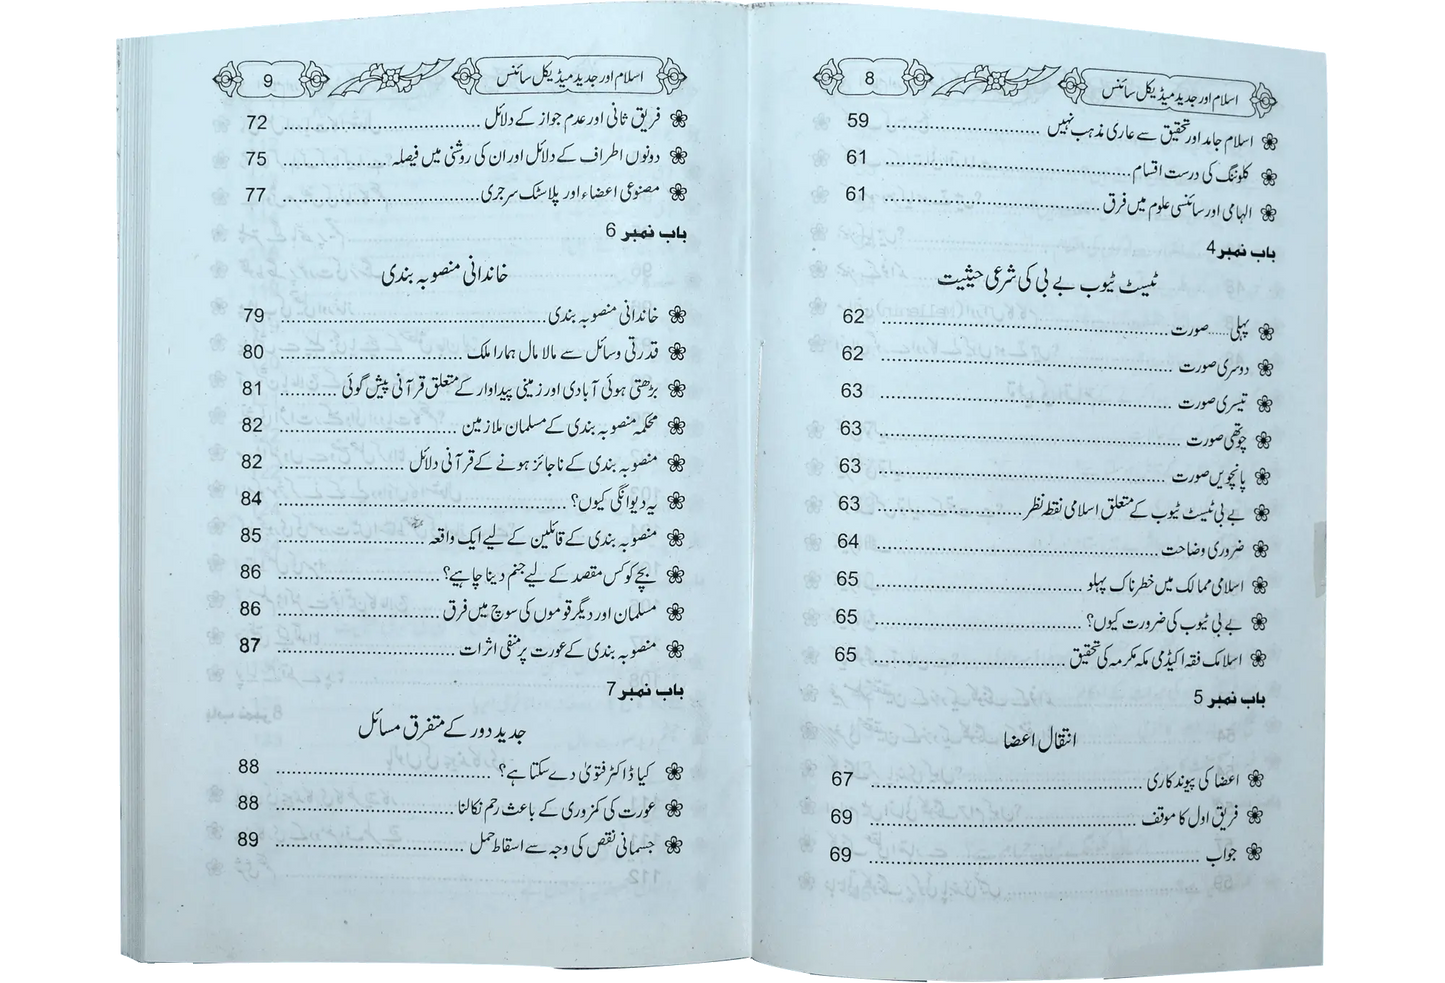 اسلام اور جدید میڈیکل سائنس 8
اسلام جامد اور تحقیق سے عاری مذہب نہیں 59
کلوننگ کی درست اقسام 61
الہامی اور سائنسی علوم میں فرق 61
باب نمبر 4
ٹیسٹ ٹیوب بے بی کی شرعی حیثیت
پہلی......صورت 62
دوسری صورت 62
تیسری صورت 63
چوتھی صورت 63
پانچویں صورت 63
بے بی ٹیسٹ ٹیوب کے متعلق اسلامی نقطہ نظر 63
ضروری وضاحت 64
اسلامی ممالک میں خطرناک پہلو 65
بے بی ٹیوب کی ضرورت کیوں؟ 65
اسلامک فقہ اکیڈمی مکہ مکرمہ کی تحقیق 65
باب نمبر 5
انتقال اعضا
اعضا کی پیوند کاری 67
فریق اول کا موقف 69
جواب 69
اسلام اور جدید میڈیکل سائنس 9
فریق ثانی اور عدم جواز کے دلائل 72
دونوں اطراف کے دلائل اور ان کی روشنی میں فیصلہ 75
مصنوعی اعضاء اور پلاسٹک سرجری 77
باب نمبر 6
خاندانی منصوبہ بندی
خاندانی منصوبہ بندی 79
قدرتی وسائل سے مالا مال ہمارا ملک 80
بڑھتی ہوئی آبادی اور زمینی پیداوار کے متعلق قرآنی پیش گوئی 81
محکمہ منصوبہ بندی کے مسلمان ملازمین 82
منصوبہ بندی کے ناجائز ہونے کے قرآنی دلائل 82
یہ دیوانگی کیوں؟ 84
منصوبہ بندی کے قائلین کے لیے ایک واقعہ 85
بچے کو کس مقصد کے لیے جنم دینا چاہیے؟ 86
مسلمان اور دیگر قوموں کی سوچ میں فرق 86
منصوبہ بندی کے عورت پر منفی اثرات 87
باب نمبر 7
جدید دور کے متفرق مسائل
کیا ڈاکٹر فتویٰ دے سکتا ہے؟ 88
عورت کی کمزوری کے باعث رحم نکالنا 88
جسمانی نقص کی وجہ سے اسقاط حمل 89